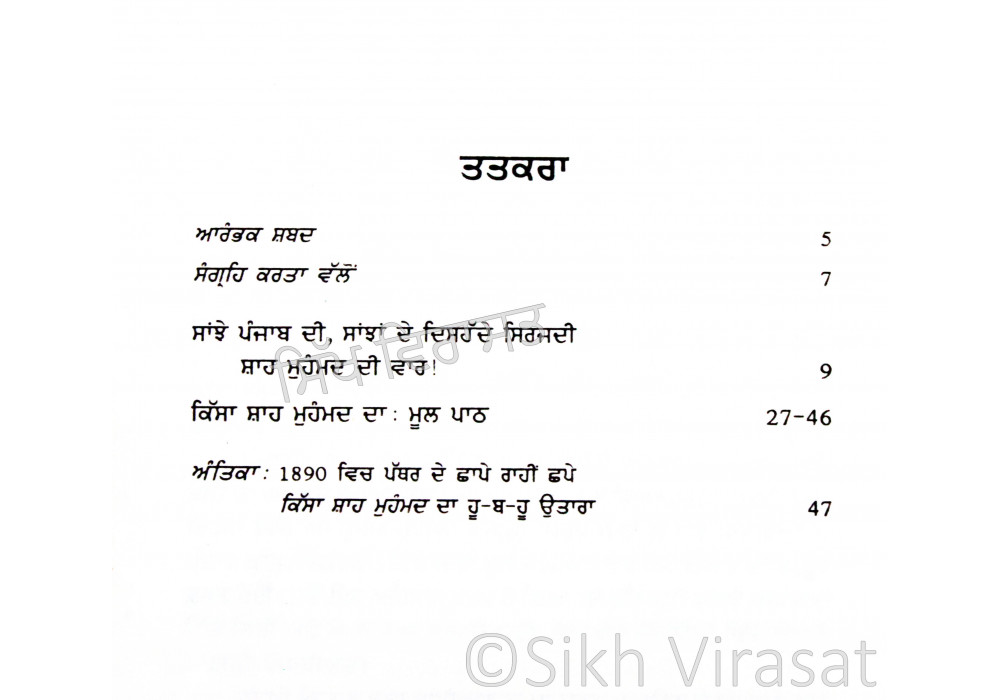 ਤਤਕਰਾ
ਆਰੰਭਕ ਸ਼ਬਦ 5
ਸੰਗ੍ਰਹਿ ਕਰਤਾ ਵੱਲੋਂ 7
ਸਾਂਝੇ ਪੰਜਾਬ ਦੀ, ਸਾਂਝਾਂ ਦੇ ਦਿਸਹੱਦੇ ਸਿਰਜਦੀ
ਸ਼ਾਹ ਮੁਹੰਮਦ ਦੀ ਵਾਰ! 9
ਸਿੱਖ ਵਿਰਾਸਤ
ਕਿੱਸਾ ਸ਼ਾਹ ਮੁਹੰਮਦ ਦਾ : ਮੂਲ ਪਾਠ 27-46
ਅੰਤਿਕਾ : 1890 ਵਿਚ ਪੱਥਰ ਦੇ ਛਾਪੇ ਰਾਹੀਂ ਛਪੇ
ਕਿੱਸਾ ਸ਼ਾਹ ਮੁਹੰਮਦ ਦਾ ਹੂ-ਬ-ਹੂ ਉਤਾਰਾ 47
©Sikh Virasat